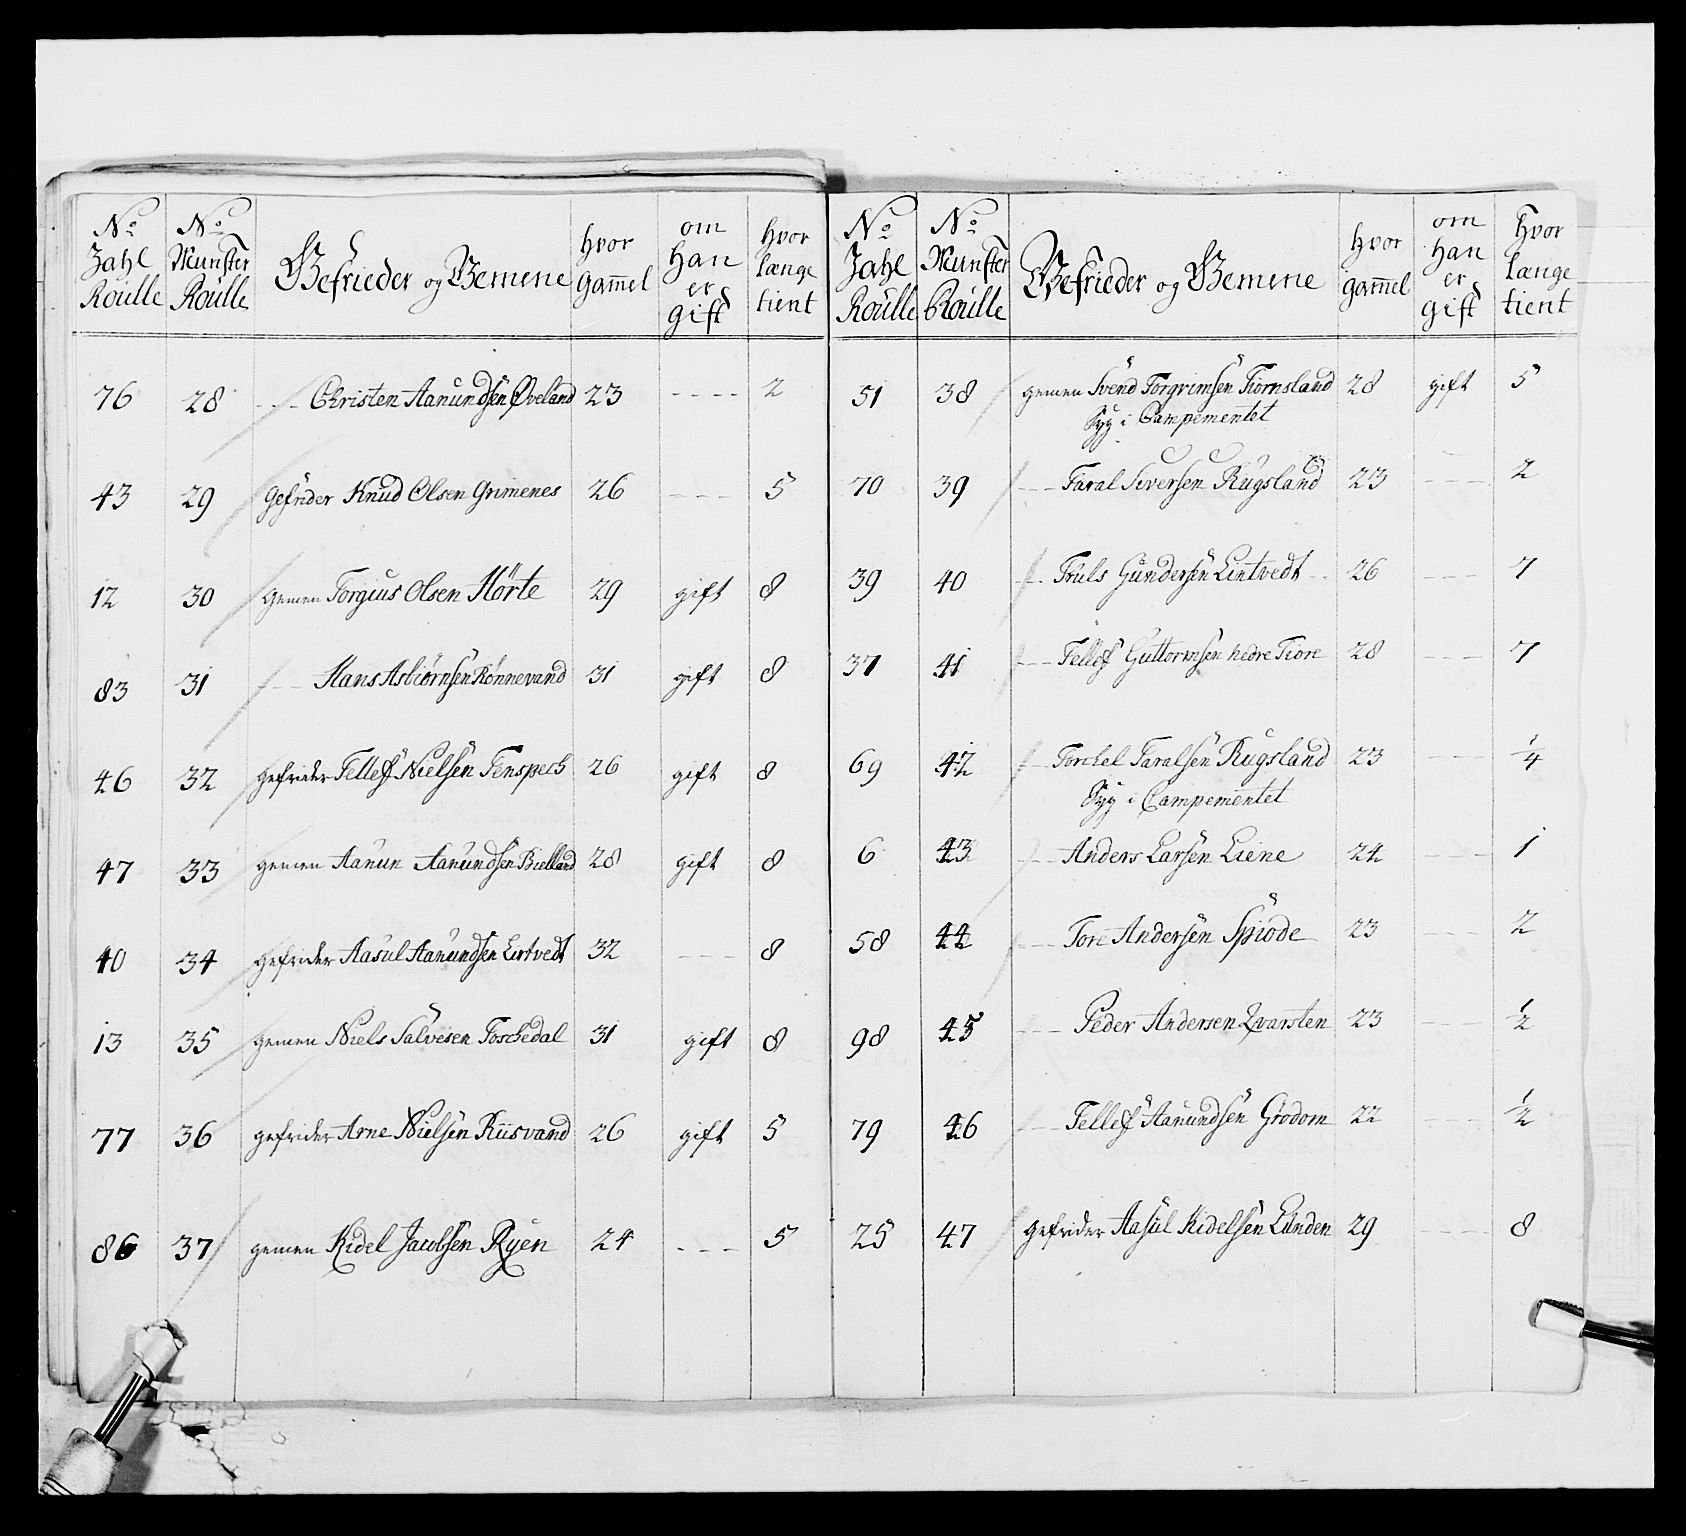 No Zahl Roulle | No Munster Roulle | Gefrieder og Gemene | hvor gam̄el | om han er gift | hvor længe tient
76 28 --- Christen Aanundsen Øveland 23 ---- 2
43 29 Gefrider Knud Olsen Grimenes 26 ---- 5
12 30 Gemen Torgius Olsen Hörte 29 gift 8
83 31 --- Hans Asbiörnsen Rönnevand 31 gift 8
46 32 gefrider Tellef Nielsen Fenspech 26 gift 8
47 33 gemen Aanun Aanundsen Bielland 28 gift 8
40 34 gefrider Aasul Aanundsen Lintvedt 32 ---- 8
13 35 gemen Niels Salvesen Foschedal 31 gift 8
77 36 gefrider Arne Nielsen Riisvand 26 gift 5
86 37 gemen Kidel Jacobsen Ryen 24 ---- 5
No Zahl Roulle | No Munster Roulle | Gefrieder og Gemene | hvor gam̄el | om han er gift | hvor længe tient
51 38 gemen Svend Torgrimsen Tiørnsland 28 gift 5
Syg i Campementet
70 39 --- Taral Siversen Rugsland 23 ---- 2
39 40 --- Truls Gundersen Lintvedt 26 ---- 7
37 41 --- Tellef Guttormsen nedre Tiore 28 ---- 7
69 42 --- Torchel Taralsen Rugsland 23 ---- 1/4
Syg i Campementet
6 43 --- Anders Larsen Liene 24 ---- 1
58 44 --- Tore Andersen Spiode 23 ---- 2
98 45 --- Peder Andersen Qvarsten 23 ---- 1/2
79 46 --- Tellef Aanundsen Grodom 22 ---- 1/2
25 47 Gefrider Aasul Kidelsen Lunden 29 ---- 8